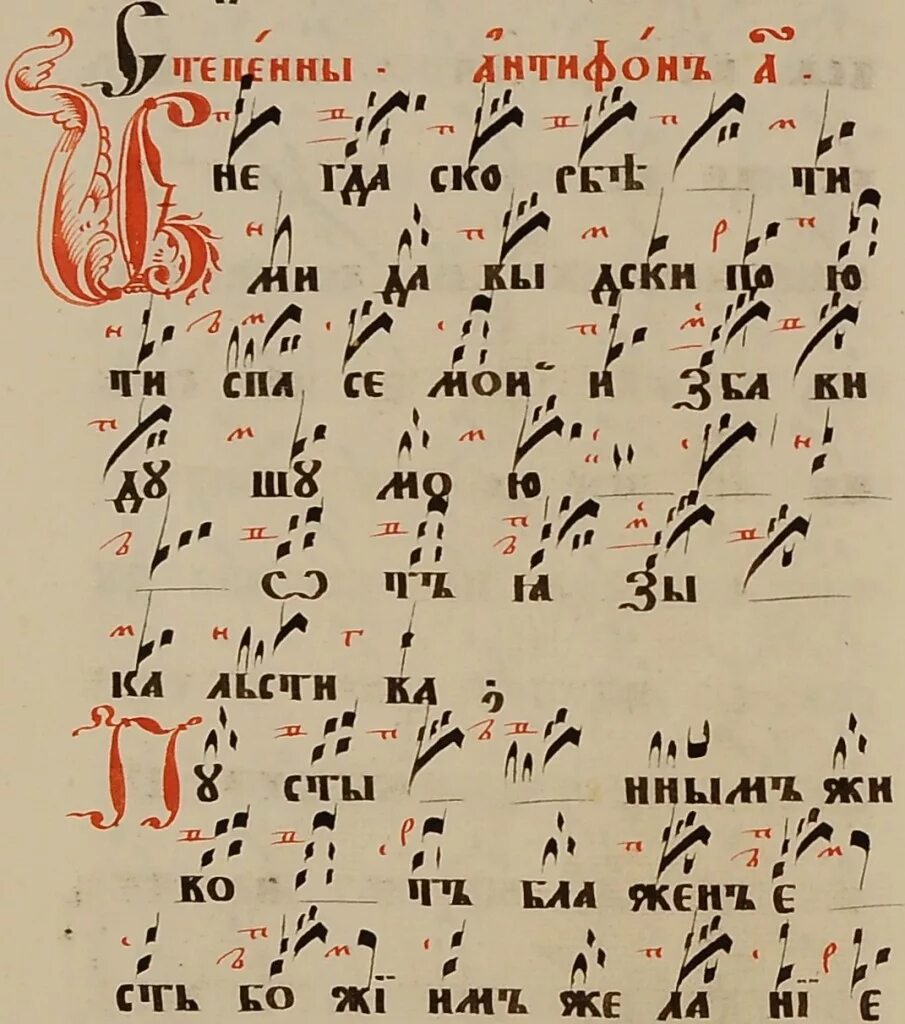 Степе́нны · а҆нтифо́нъ а҃ .
Вне гда ско рбѣ ти
ми да вы дски по ю
ти спа се мои и зба ви
дꙋ шꙋ мо ю
ѡ тъ ꙗ зы
ка льсти ва ;
Пꙋ сты ннымъ жи
во тъ бла женъ е
сть бо жї имъ же ла нї е